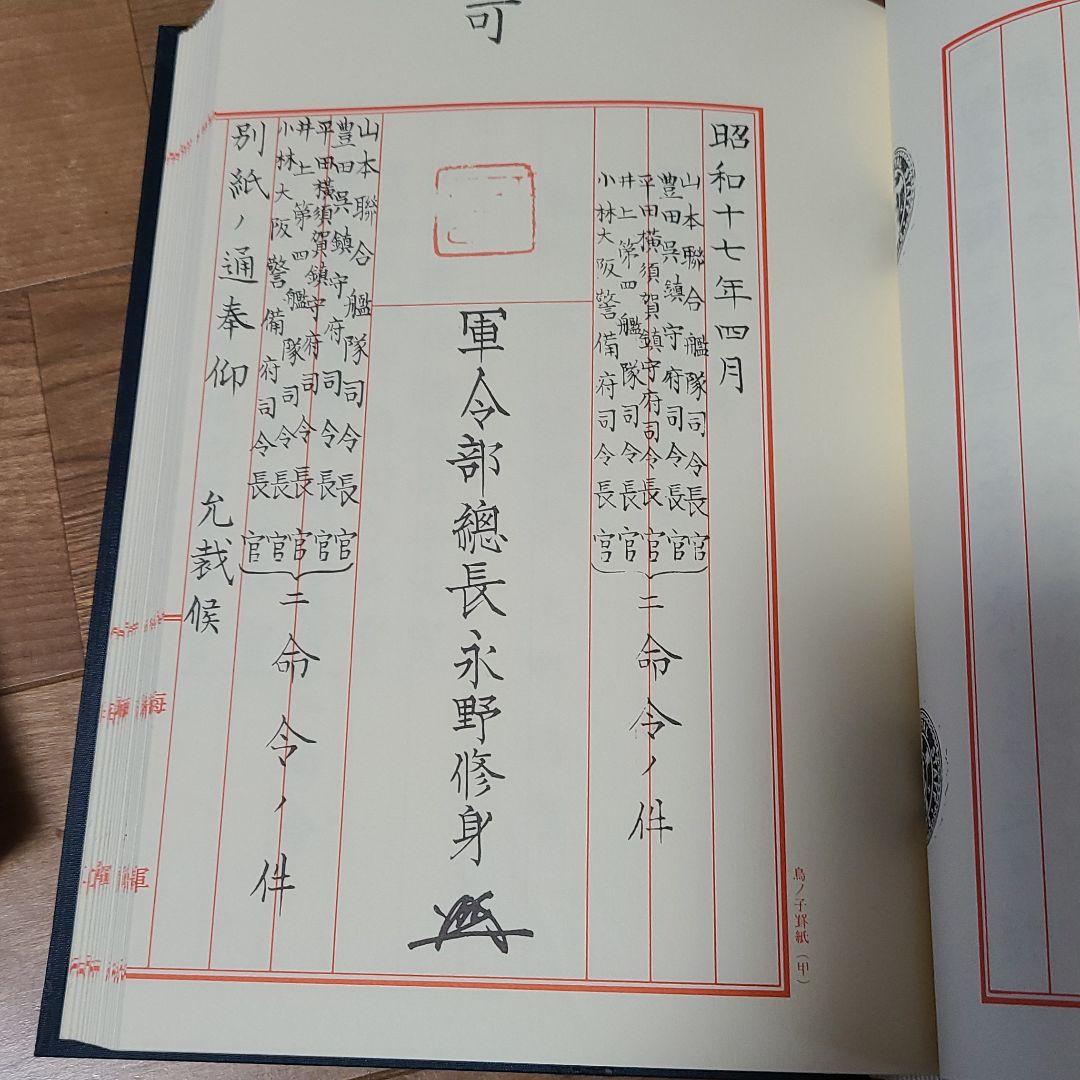 可
昭和十七年四月
山本聯合艦隊司令長官
豊田呉鎮守府司令長官
平田横須賀鎮守府司令長官
井上第四艦隊司令長官
小林大阪警備府司令長官
ニ命令ノ件
軍令部總長永野修身
山本聯合艦隊司令長官
豊田呉鎮守府司令長官
平田横須賀鎮守府司令長官
井上第四艦隊司令長官
小林大阪警備府司令長官
ニ命令ノ件
別紙ノ通奉仰 允裁候
海
軍
鳥ノ子罫紙(甲)